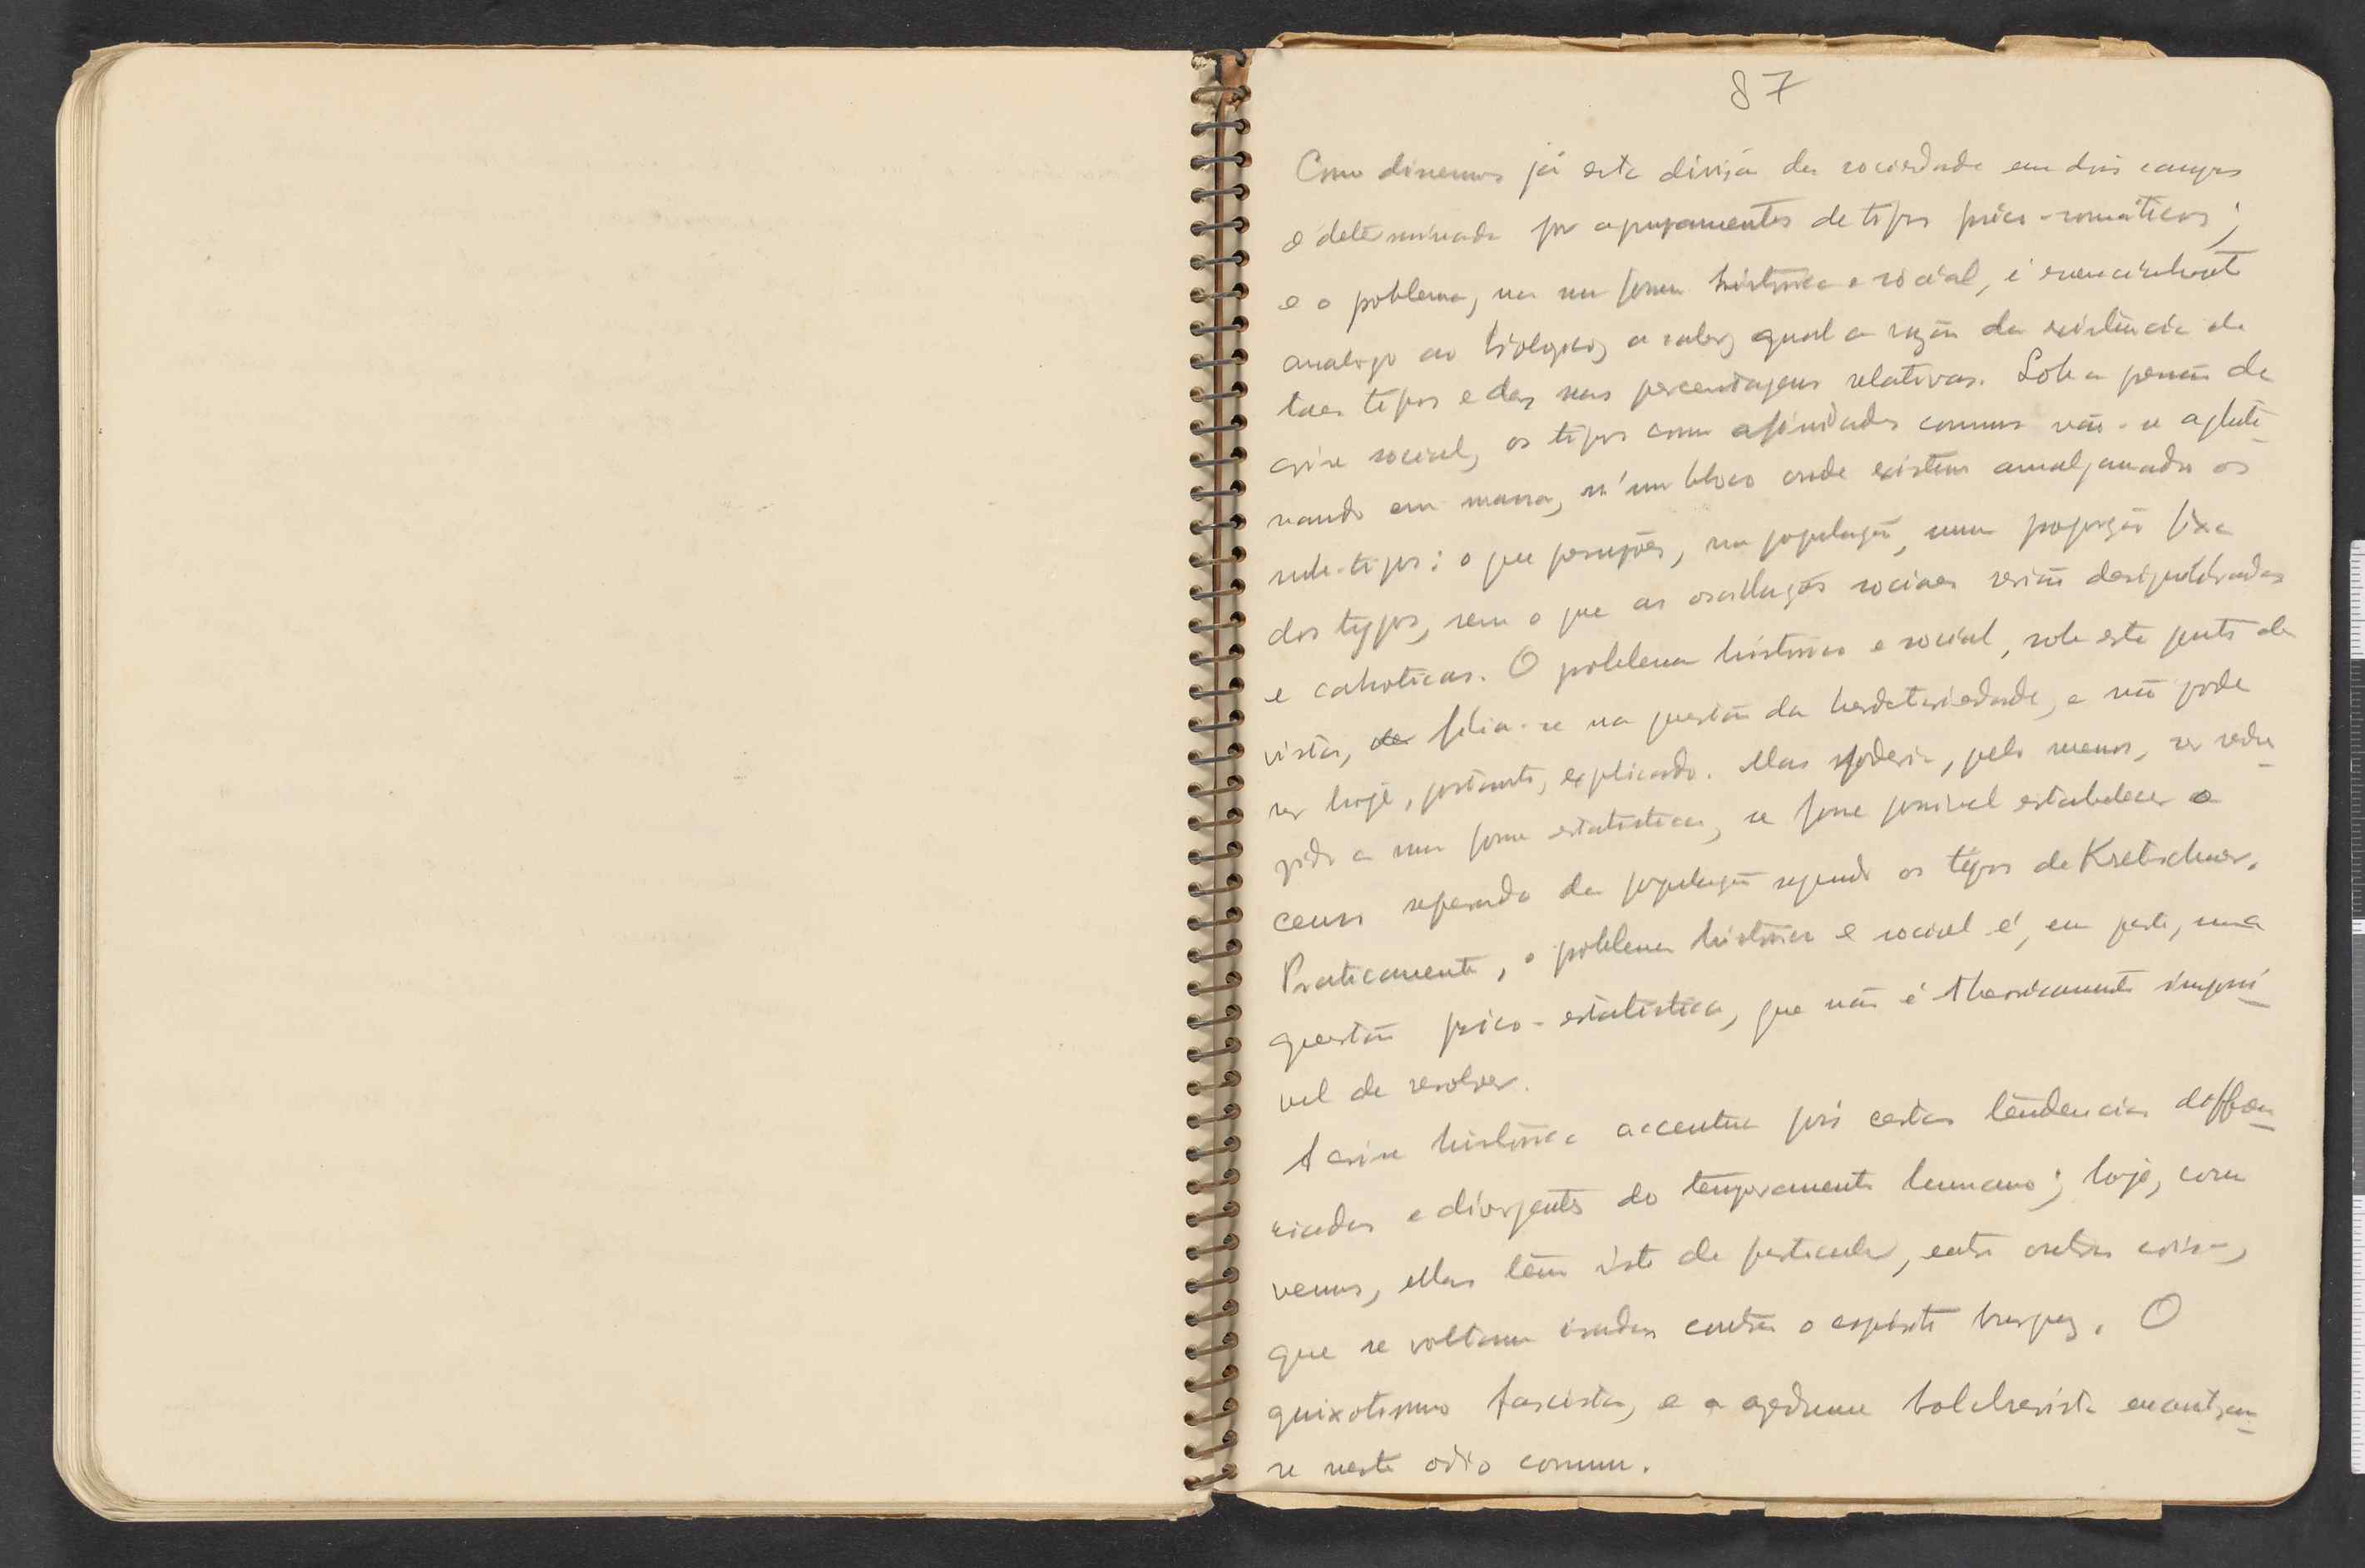 87
Como dissemos já esta divisão da sociedade em dois campos
é determinada por agrupamentos de tipos psico-somáticos;
e o problema, na sua forma histórica e social, é essencialmente
analogo ao biologico, a saber, qual a razão da existência de
taes tipos e das suas percentagens relativas. Sob a pressão da
crise social, os tipos com afinidades comuns vão-se agluti-
nando em massa, n'um bloco onde existem amalgamados os
sub-tipos: o que pressupões, na população, uma proporção fixa
dos typos, sem o que as oscillações sociaes serião desiquilibradas
e cahoticas. O problema histórico e social, sob este ponto de
vista, filia-se na questão da herdetariedade, e não pode
ser hoje, portanto, explicado. Mas poderia, pelo menos, ser redu-
zido a uma forma estatistica, se fosse possivel estabelecer o
censo separado da população segundo os tipos de Kretschmer.
Praticamente, o problema histórico e social é, em parte, uma
questão psico-estatistica, que não é theoricamente impossi-
vel de resolver.
A crise histórica accentua pois certas tendencias differen-
ciadas e divergentes do temperamento humano; hoje, como
vemos, ellas têm isto de particular, entre outras coisas,
que se voltam iradas contra o espirito burguez. O
quixotismo fascista, e o azedume bolchevista encontram-
se neste odio comum.